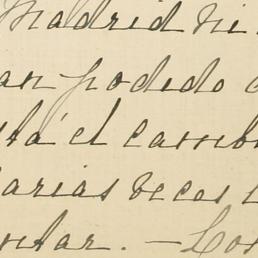 Madrid ni
an podido
tá el cambi
arias veces
ntar. — Los